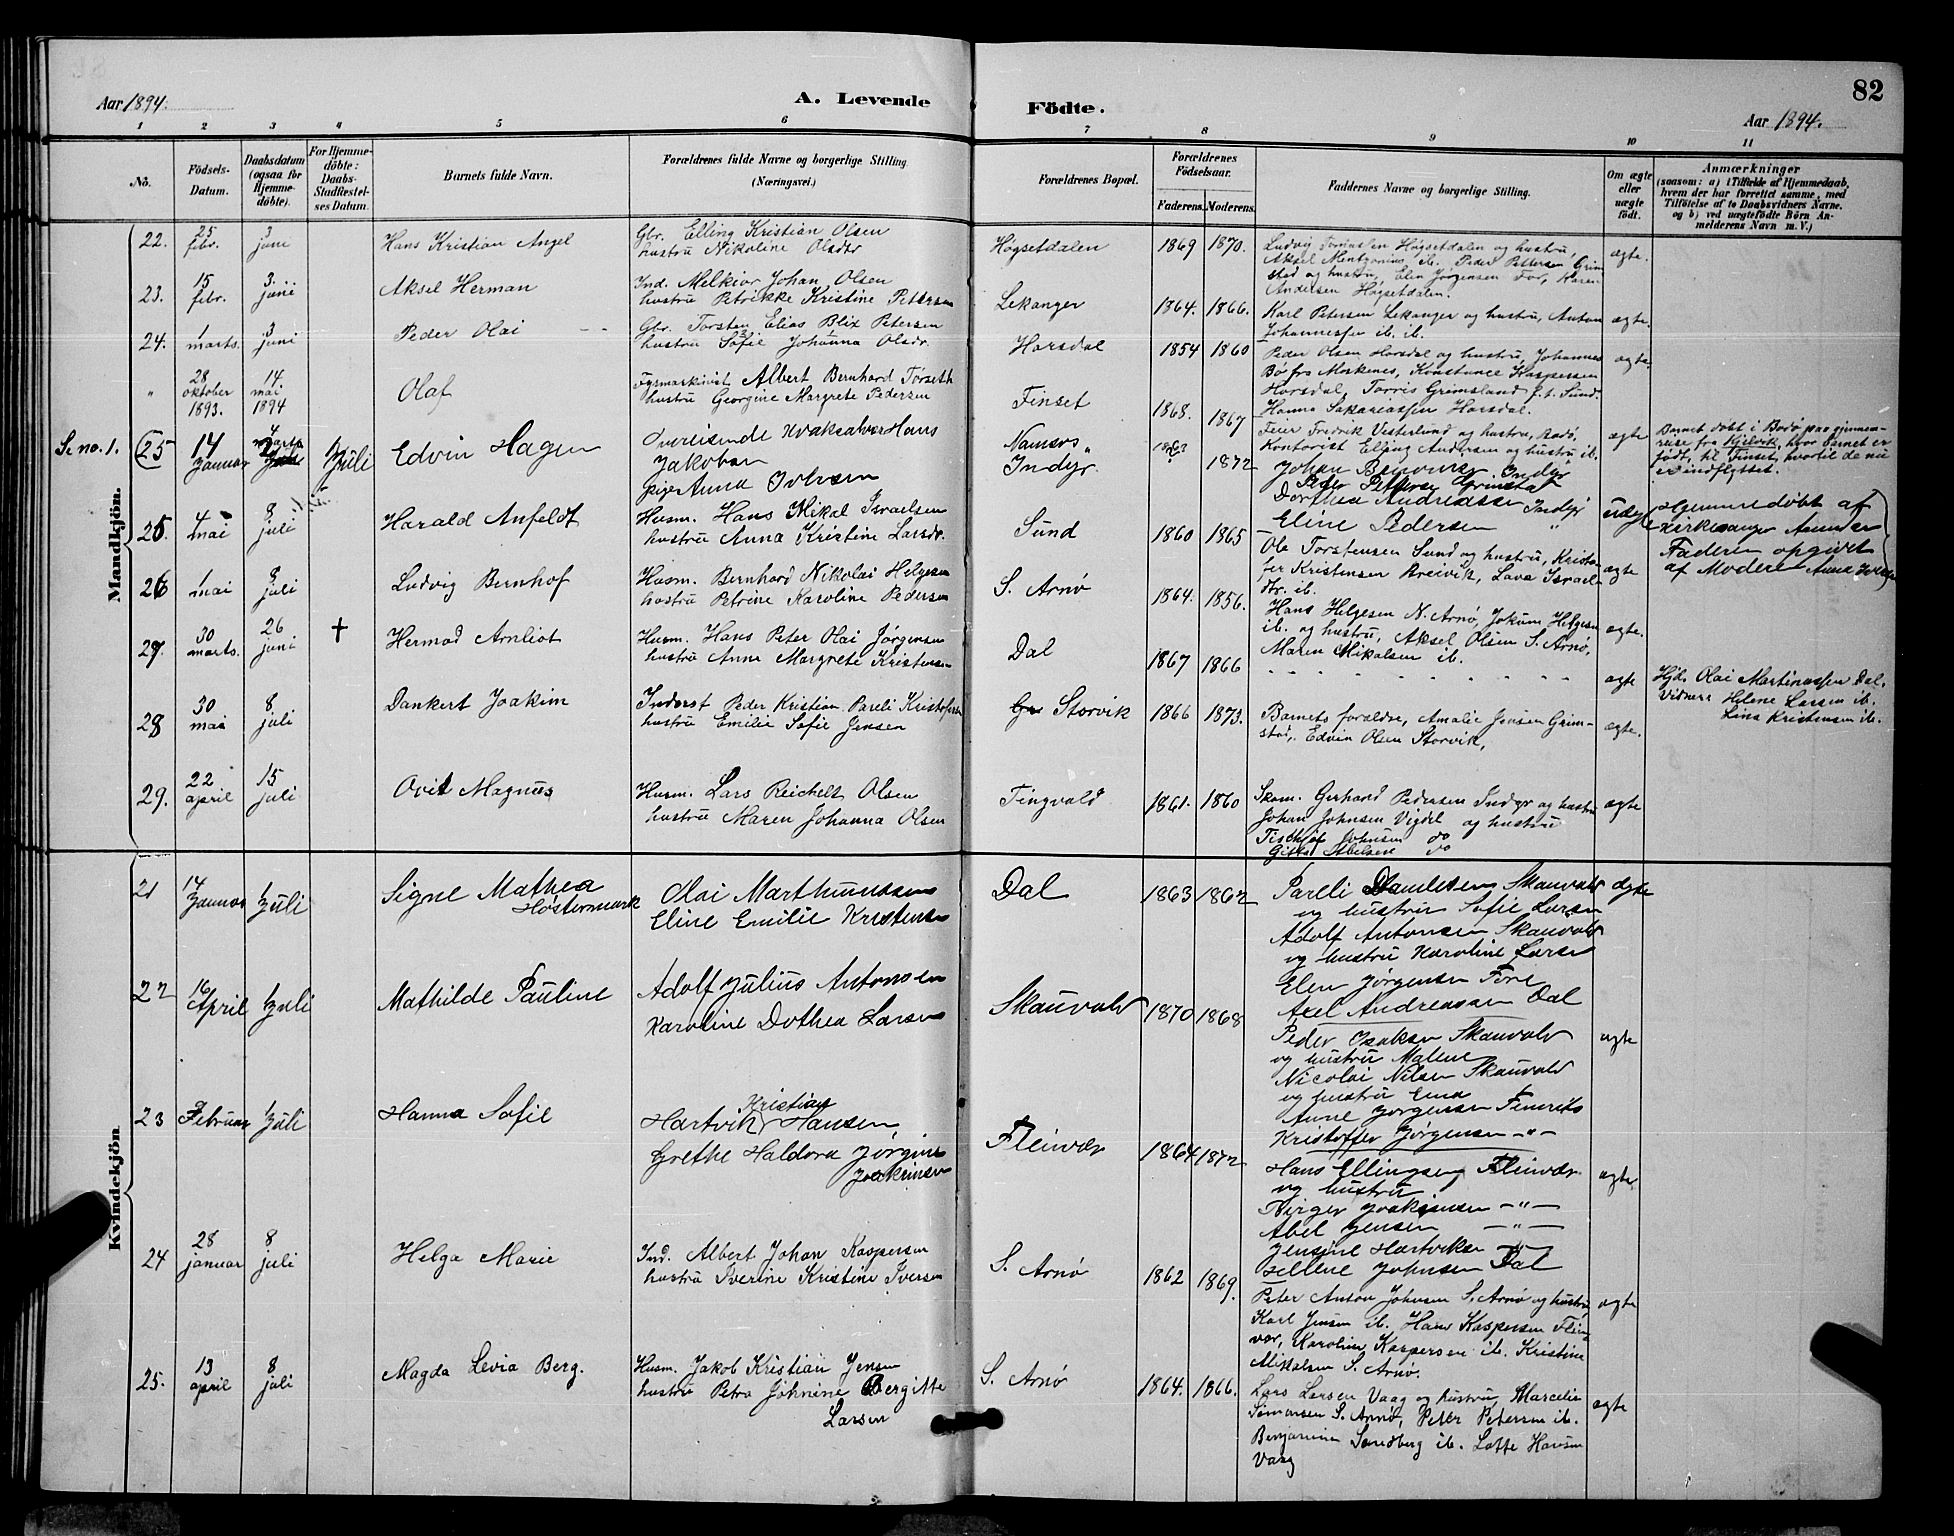 82
Aar 1894. A. Levende Födte. Aar 1894.
1 2 3 4 5 6 7 8 9 10 11
No.
Födsels-Datum.
Daabsdatum (ogsaa for Hjemme-döbte).
For Hjemme-döbte: Daabs-Stadfæstel-ses Datum.
Barnets fulde Navn.
Forældrenes fulde Navne og borgerlige Stilling (Næringsvei.)
Forældrenes Bopæl.
Forældrenes Födselsaar.
Faderens. Moderens.
Faddernes Navne og borgerlige Stilling.
Om ægte eller uægte födt.
Anmærkninger
(saasom: a) i Tilfælde af Hjemmedaab,
hvem der har forrettet samme, med
Tilföielse af to Daabsvidners Navne.
og b) ved uægtefödte Börn An-
melderens Navn m. V.)
Mandkjön.
22. 25 febr. 3 juni Hans Kristian Angel
Gbr. Elling Kristian Olsen
hustru Nikoline Olsdr
Høgsetdalen 1869 1870.
Ludvig Tomassen Høgsetdalen og hustru,
Aksel Montgonius ib. Peder Pettersen Grim
stad og hustru, Elen Jørgensen For, Karen
Andersen Høgsetdalen.
ægte.
23. 15 febr. 3. juni Aksel Herman
Ind. Melkior Johan Olsen
hustru Petrikke Kristine Petersen
Lekanger 1864. 1866.
Karl Petersen Lekanger og hustru, Anton
Johannessen ib. ib.
ægte.
24. 1 marts. 3 juni Peder Olai
Gbr. Torsten Elias Blix Petersen
hustru Sofie Johanna Olsdr.
Horsdal 1854 1860
Peder Olsen Horsdal og hustru, Johannes
Bö fra Moskenes, Konstance Kaspersen
Horsdal, Torris Grimsland p.t. Sund.
Hanna Sakariassen Horsdal.
ægte.
" 28 oktober 1893. 14 mai 1894 Olaf
Fyrmarkvist Albert Bernhard Torseth
hustru Georgine Margrete Pedersen
Finset 1868. 1867
Feier Fredrik Vesterlund og hustru, Bodø,
Kontorist Elling Andersen og hustru ib.
ægte
Barnet döbt i Bodø paa gjennem-
reise fra Kjelvik, hvor barnet er
født, til Finset, hvortil de nu
er indflyttet.
Se no. 1. 25 14 Januar 4 marts Juli Edvin Hagen
Overleisende Kvaksalver Hans
Jakobsen
pige Anna Iversen
Namsos
Indyr 1872
Johan Indyr
Peder Pettersen Grimstad
Dorthea Andreassen Indyr
Eline Pedersen "
uægte
Hjemmedöbt af
kirkesanger
Faderen opgivet
af Moderen Anna Iversen
25. 4 mai 8 juli Harald Anfeldt
Husm. Hans Mikal Israelsen
hustru Anna Kristine Larsdr.
Sund 1860 1865
Ole Torstensen Sund og hustru, Kristo-
fer Kristensen Breivik, Lava Israels-
dtr. ib.
ægte
26 1 mai 8 juli Ludvig Bernhof
Husm. Bernhard Nikolai Helgesen
hustru Petrine Karoline Pedersen
S. Arnø 1864. 1856.
Hans Helgesen N. Arnø, Jokum Helgesen
ib. og hustru, Aksel Olsen S. Arnø,
Maren Mikalsen ib.
ægte.
27. 30 marts. 26 juni † Hermod Arnliot
Husm. Hans Peter Olai Jørgensen
hustru Anne Margrete Kristensen
Dal 1867 1866
ægte
Hjd. Olai Martinussen Dal.
Vidner: Helene Larsen ib.
Lina Kristensen ib.
28 30 mai 8. juli Dankert Joakim
Inderst Peder Kristian Pareli Kristofersen
hustru Emilie Sofie Jensen
Storvik 1866 1873.
Barnets foræld­re, Amalie Jensen Grim-
stad, Edvin Olsen Storvik,
ægte.
29. 22 april 15 juli Ovit Magnus
Husm. Lars Reichelt Olsen
hustru Maren Johanna Olsen
Tingvold 1861. 1860
Skom. Gerhard Pedersen Indyr og hustru
Johan Johnsen Vigdel og hustru
Johnsen do
Abelsen do
ægte
Kvindekjön
21 14 Januar 1 Juli Signe Mathea
Høstermark
Olai Marthinussen
Eline Emilie Kristensen
Dal 1863 1862
Pareli Danielsen Skauvold
og hustru Sofie Larsen
Adolf Antonsen Skauvold
og hustru Karoline Larsen
Elen Jørgensen Fore
Axel Andreassen Dal
ægte
22 16 April 1 Juli Mathilde Pauline
Adolf Julius Antonsen
Karoline Dothea Larsen
Skauvold 1870 1868
Peder Isaksen Skauvold
og hustru Malene
Nicolai Nilsen Skauvold
og hustru Ema
Anne Jørgensen
Kristoffer Jørgensen -"-
ægte
23 Februar 1 Juli Hanna Sofie
Kristian
Hartvik Hansen
Grethe Haldora Jørgine
Joakimsen
Fleinvær 1864 1872
Hans Ellingsen Fleinvær
og hustru
Birger Joakimsen -"-
Abel Jensen -"-
Jensine Hartviksen "
Helene Johnsen Dal
ægte
24 28 januar 8 juli Helga Marie
Ind. Albert Johan Kaspersen
hustru Iverine Kristine Iversen
S. Arnø 1862 1869.
Peter Anton Johnsen S. Arnø og hustru,
Karl Jensen ib. Hans Kaspersen Flein-
vær, Karoline Kaspersen ib. Kristine
Mikalsen S. Arnø.
ægte
25. 13 april 8 juli Magda Levia Berg.
Husm. Jakob Kristian Jensen
hustru Petra Johnine Bergitte
Larsen
S. Arnø 1864. 1866.
Lars Larsen Vaag og hustru, Marcelie
Simonsen S. Arnø, Peter Petersen ib.
Benjamine Sandberg ib. Lotte Hansen
Vaag
ægte